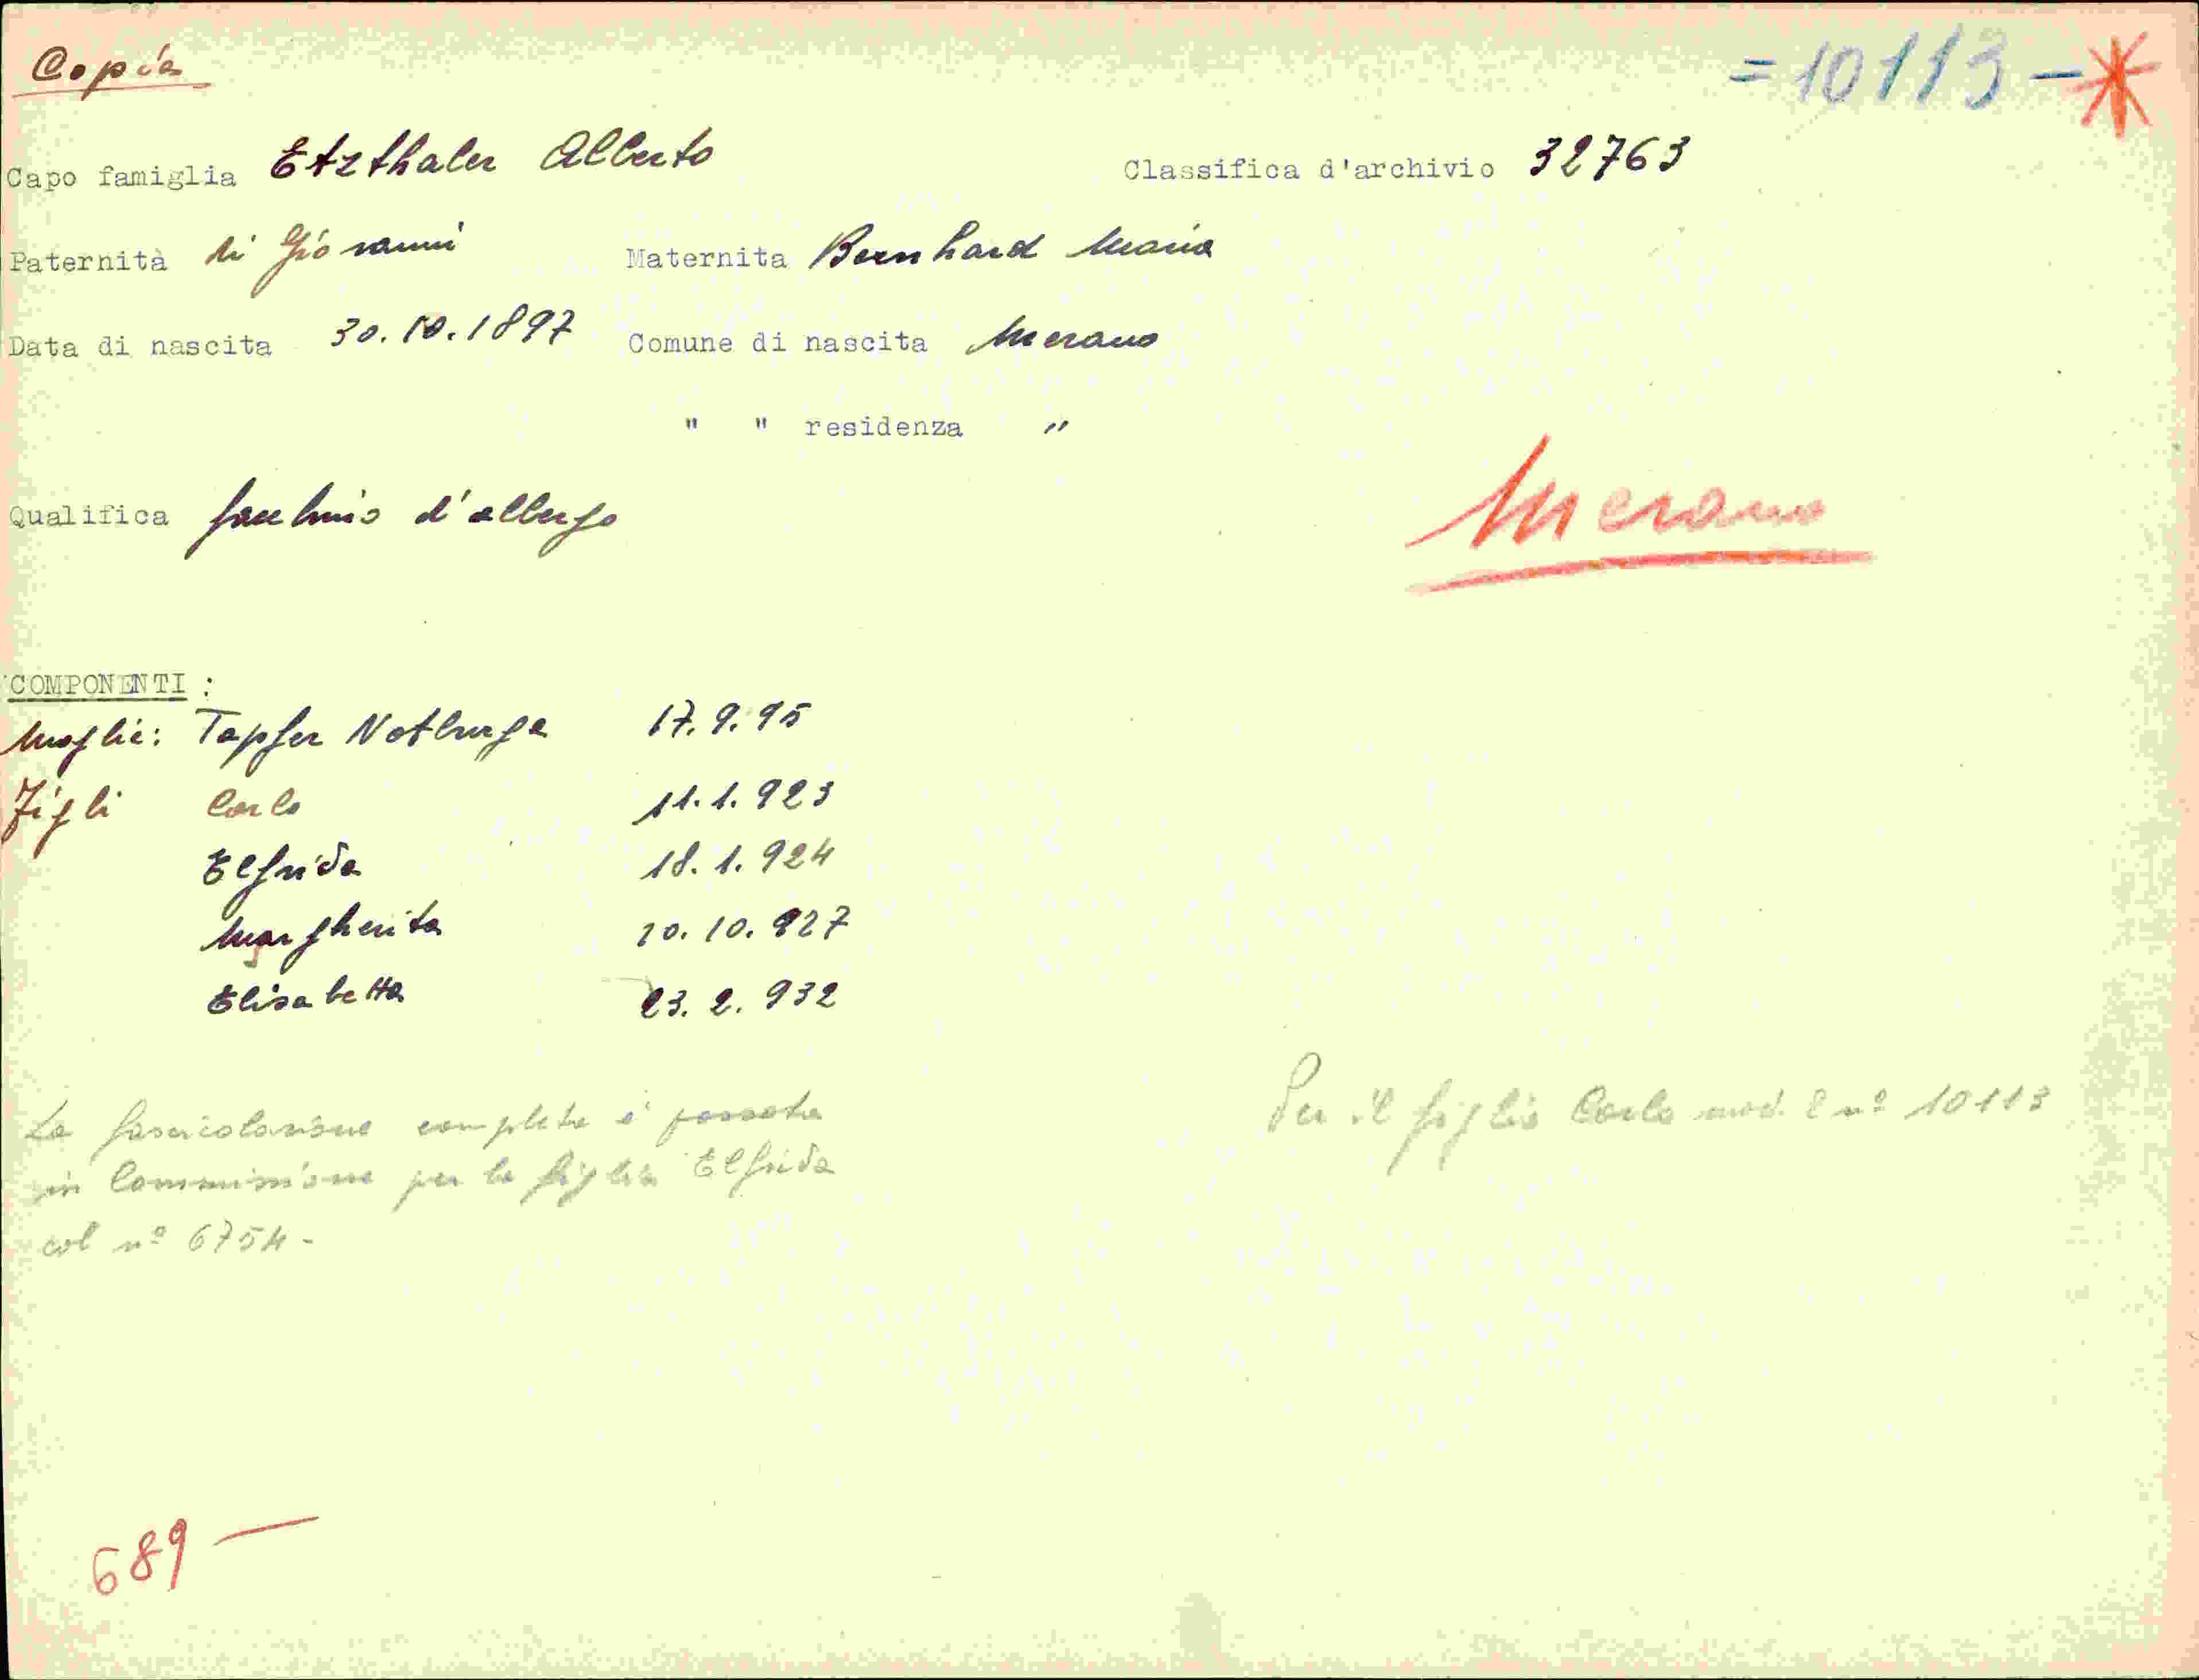 Copia
=10113-
Capo famiglia Etzthaler Alberto Classifica d'archivio 32763
Paternità di Giovanni Maternita Bernhard Maria
Data di nascita 30.10.1897 Comune di nascita Merano
" " residenza "
Qualifica facchino d'albergo
Merano
COMPONENTI :
Moglie: Tapfer Notburga 17.9.95
Figli Carlo 11.1.923
Elfrida 18.1.924
Margherita 20.10.927
Elisabetta 23.2.932
La fascicolazione completa è passata
in Commissione per la figlia Elfrida
col nº 6754-
Per il figlio Carlo mod. 2 nº 10113
689—